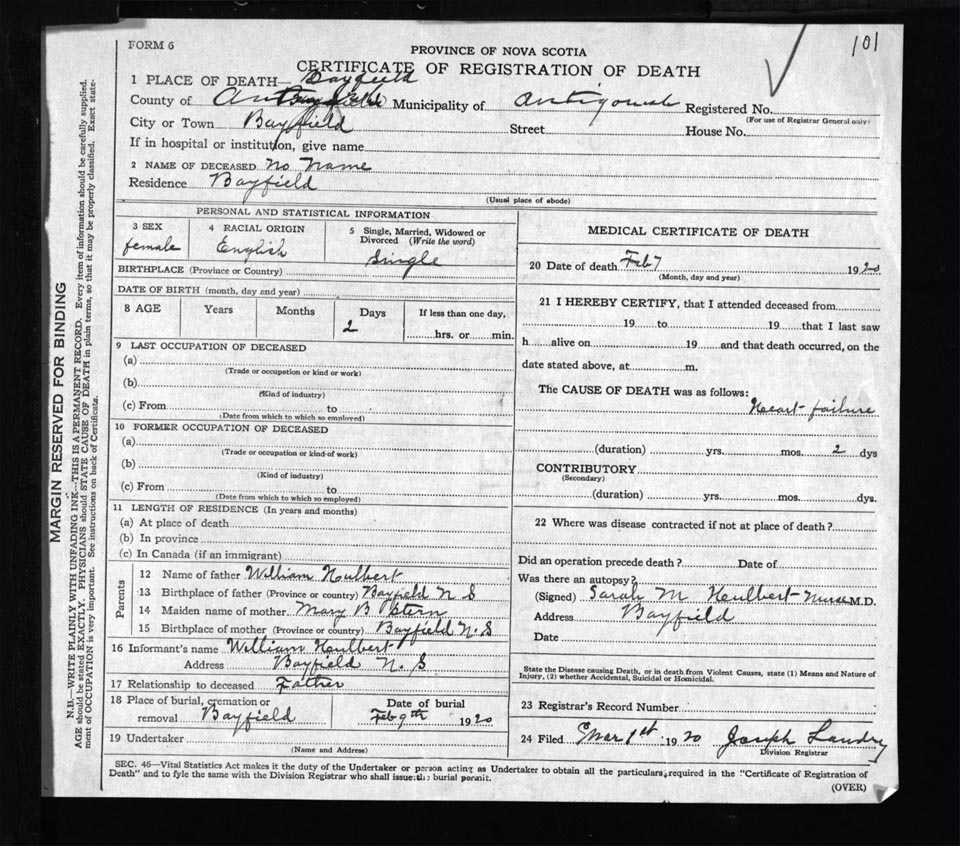 101
FORM 6
PROVINCE OF NOVA SCOTIA
CERTIFICATE OF REGISTRATION OF DEATH
1 PLACE OF DEATH— Bayfield
County of Municipality of Antigonish Registered No.
(For use of Registrar General only)
City or Town Bayfield Street House No.
If in hospital or institution, give name
2 NAME OF DECEASED No Name
Residence Bayfield
(Usual place of abode)
PERSONAL AND STATISTICAL INFORMATION
3 SEX 4 RACIAL ORIGIN 5 Single, Married, Widowed or Divorced (Write the word)
female English Single
BIRTHPLACE (Province or Country)
DATE OF BIRTH (month, day and year)
8 AGE Years Months Days If less than one day,
2 hrs. or min.
9 LAST OCCUPATION OF DECEASED
(a)
(Trade or occupation or kind or work)
(b)
(Kind of industry)
(c) From to
(Date from which to which so employed)
10 FORMER OCCUPATION OF DECEASED
(a)
(Trade or occupation or kind of work)
(b)
(Kind of industry)
(c) From to
(Date from which to which so employed)
11 LENGTH OF RESIDENCE (In years and months)
(a) At place of death
(b) In province
(c) In Canada (if an immigrant)
Parents
12 Name of father William Hulbert
13 Birthplace of father (Province or country) Bayfield N S
14 Maiden name of mother Mary B Stern
15 Birthplace of mother (Province or country) Bayfield N. S
16 Informant's name William Hulbert
Address Bayfield N. S
17 Relationship to deceased Father
18 Place of burial, cremation or removal Bayfield
Date of burial
Feb 9th 1920
19 Undertaker
(Name and Address)
MEDICAL CERTIFICATE OF DEATH
20 Date of death Feb 7 1920
(Month, day and year)
21 I HEREBY CERTIFY, that I attended deceased from
19 to 19 that I last saw
h alive on 19 and that death occurred, on the
date stated above, at m.
The CAUSE OF DEATH was as follows:
Heart failure
(duration) yrs. mos. 2 dys
CONTRIBUTORY
(Secondary)
(duration) yrs. mos. dys.
22 Where was disease contracted if not at place of death?
Did an operation precede death? Date of
Was there an autopsy?
(Signed) Sarah M Hulbert Nurse M.D.
Address Bayfield
Date
State the Disease causing Death, or in death from Violent Causes, state (1) Means and Nature of
Injury, (2) whether Accidental, Suicidal or Homicidal.
23 Registrar's Record Number
24 Filed Mar 1st 1920 Joseph Landry
Division Registrar
SEC. 46—Vital Statistics Act makes it the duty of the Undertaker or person acting as Undertaker to obtain all the particulars, required in the "Certificate of Registration of
Death" and to fyle the same with the Division Registrar who shall issue the burial permit.
(OVER)
MARGIN RESERVED FOR BINDING
N.B.—WRITE PLAINLY WITH UNFADING INK—THIS IS A PERMANENT RECORD. Every item of information should be carefully supplied.
AGE should be stated EXACTLY. PHYSICIANS should STATE CAUSE OF DEATH in plain terms, so that it may be properly classified. Exact state-
ment of OCCUPATION is very important. See instructions on back of Certificate.